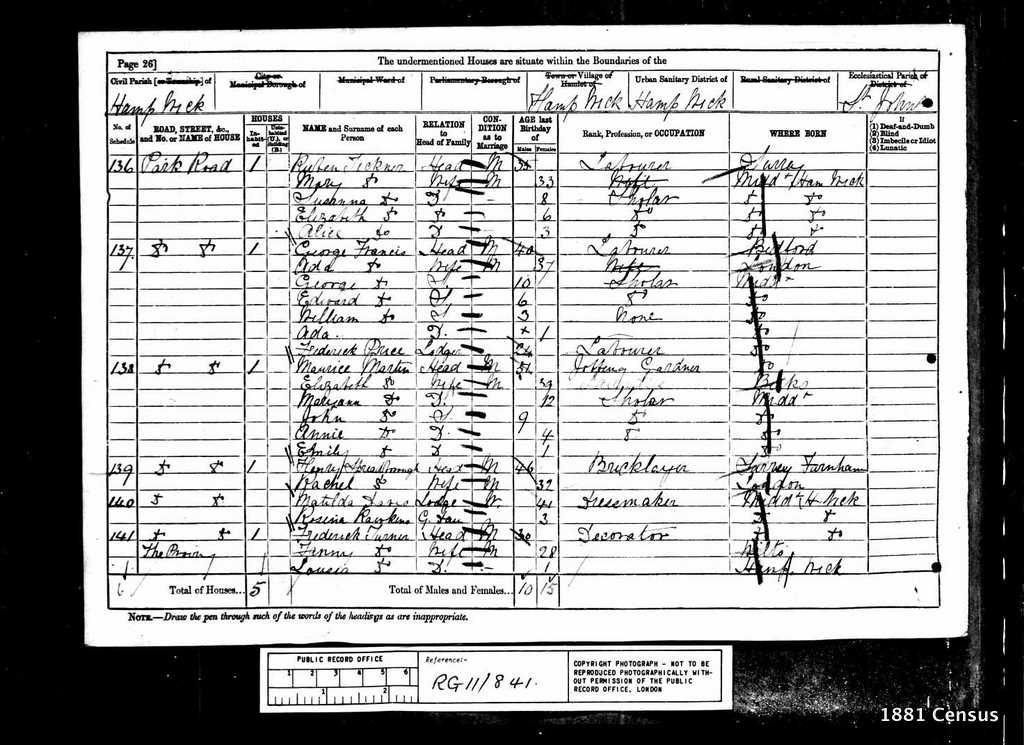 Page 26]
The undermentioned Houses are situate within the Boundaries of the
Civil Parish [or Township] of
City or Municipal Borough of
Municipal Ward of
Parliamentary Borough of
Town or Village of Hamlet of
Urban Sanitary District of
Rural Sanitary District of
Ecclesiastical Parish or District of
Hamp Wick Hamp Wick Hamp Wick St Johns
No. of Schedule
ROAD, STREET, &c., and No. or NAME of HOUSE
HOUSES
Inhabited
Uninhabited (U.), or Building (B.)
NAME and Surname of each Person
RELATION to Head of Family
CONDITION as to Marriage
AGE last Birthday of
Males Females
Rank, Profession, or OCCUPATION
WHERE BORN
If
(1) Deaf-and-Dumb
(2) Blind
(3) Imbecile or Idiot
(4) Lunatic
136 Park Road 1 Ruben Tickner Head M Labourer Surrey
Mary do Wife M 33 Wife Midd x Ham Wick
Susanna do D 8 Scholar do do
Elizabeth do do 6 do do do
Alice do D 3 do do do
137 do do 1 George Francis Head M 40 Labourer Bedford
Ada do Wife M 37 Wife London
George do S 10 Scholar Midd x
Edward do S 6 do do
William do S 3 None do
Ada. D. 1 do
Frederick Price Lodger 24 Labourer do
138 do do 1 Maurice Martin Head M Jobbing Gardner do
Elizabeth do Wife M 39 Bucks
Maryann do D. 12 Scholar Midd x
John do S. 9 do do
Annie do D. 4 do do
Emily do D. 1 do
139 do do 1 Henry Head M 46 Bricklayer Surrey Farnham
Rachel do Wife M 32 London
140 do do Matilda Lodge W. 41 Dressmaker Midd x H Wick
Rosina Rawkins G. Dau 3 do do
141 do do 1 Frederick Turner Head M 30 Decorator do do
The Priory Finny do Wife M 28 Wilts
Louisa do D. 1 Hamp Wick
6 Total of Houses... 5 Total of Males and Females... 10 15
NOTE.—Draw the pen through such of the words of the headings as are inappropriate.
PUBLIC RECORD OFFICE
1 2 3 4 5 6
1 2
Reference:-
RG 11/841.
COPYRIGHT PHOTOGRAPH - NOT TO BE
REPRODUCED PHOTOGRAPHICALLY WITH-
OUT PERMISSION OF THE PUBLIC
RECORD OFFICE, LONDON
1881 Census